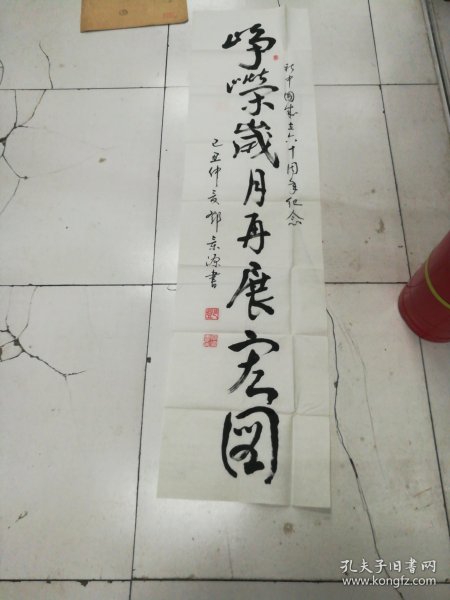 新中国成立六十周年纪念
峥嵘岁月再展宏图
己丑仲夏郭景源书
孔夫子旧书网
www.kongfz.com